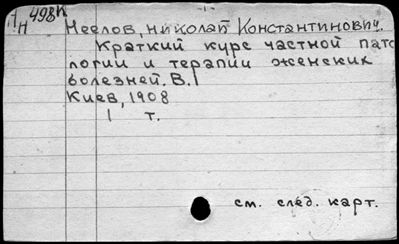 Н 498к.
- 1 -
Неелов, Николай Константинович.
Краткий курс частной пато
логии и терапии женских
болезней. В. I
Киев, 1908
1 т.
см. след. карт.